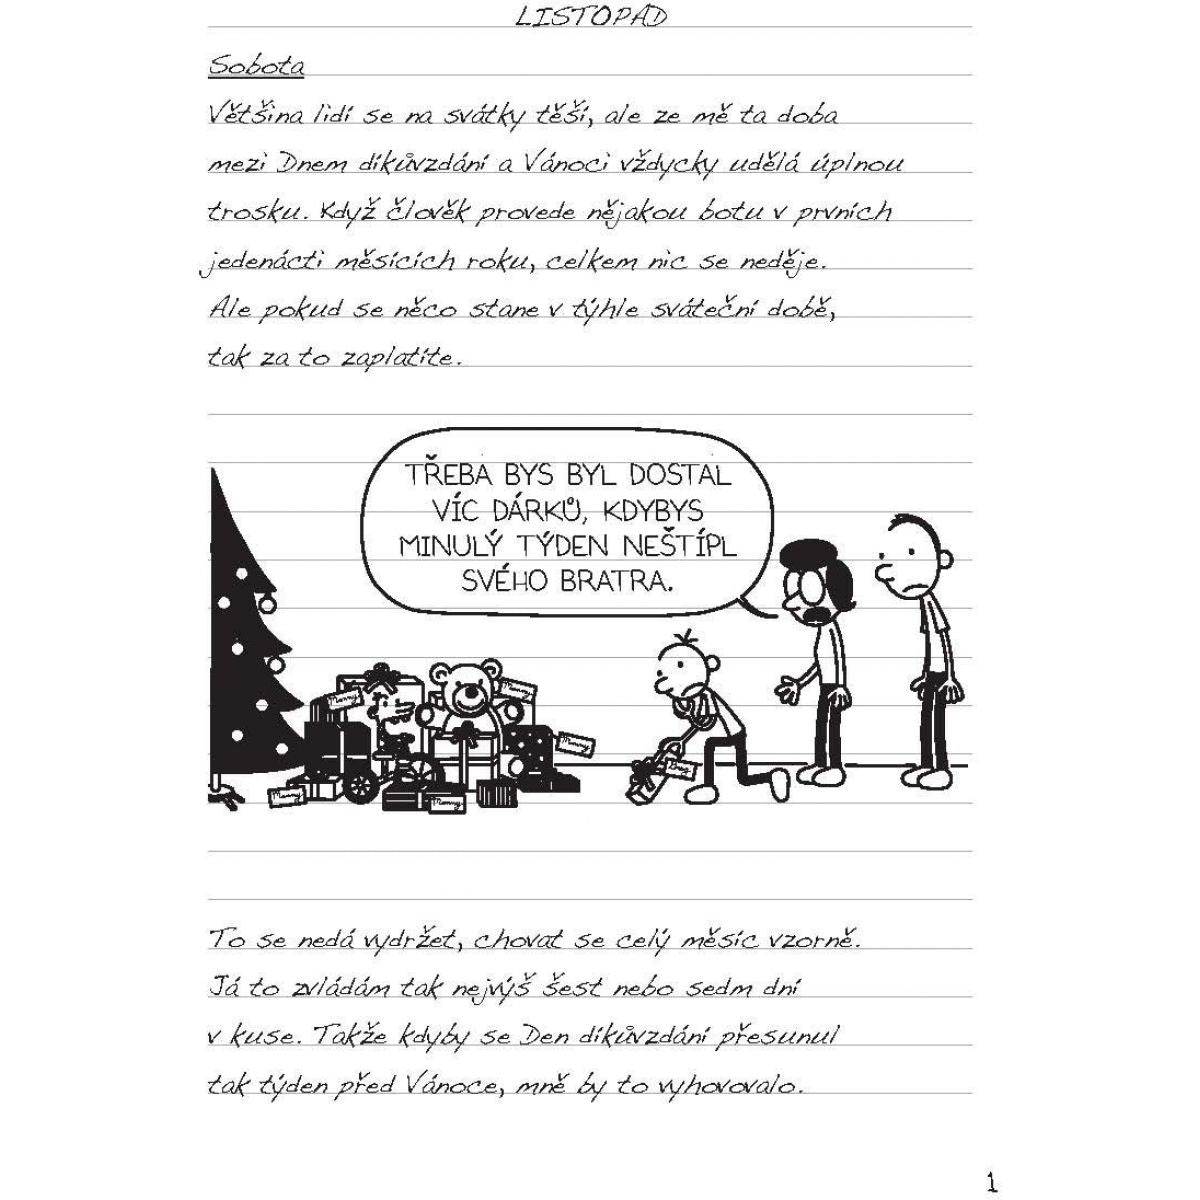 LISTOPAD
Sobota
Většina lidí se na svátky těší, ale ze mě ta doba
mezi Dnem díkůvzdání a Vánoci vždycky udělá úplnou
trosku. Když člověk provede nějakou botu v prvních
jedenácti měsících roku, celkem nic se neděje.
Ale pokud se něco stane v týhle sváteční době,
tak za to zaplatíte.
TŘEBA BYS BYL DOSTAL
VÍC DÁRKŮ, KDYBYS
MINULÝ TÝDEN NEŠTÍPL
SVÉHO BRATRA.
Manny
Manny
Manny
Manny
Manny
Greg
To se nedá vydržet, chovat se celý měsíc vzorně.
Já to zvládám tak nejvýš šest nebo sedm dní
v kuse. Takže kdyby se Den díkůvzdání přesunul
tak týden před Vánoce, mně by to vyhovovalo.
1